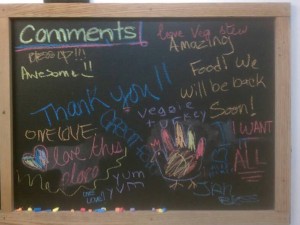 Comments!
love Veg stew
Amazing
Food! We
will be back
Soon!
Awesome!!
Thank you!!
veggie
turkey
ONE LOVE
I love this
place
I WANT
ALL
yum
yum
Jen